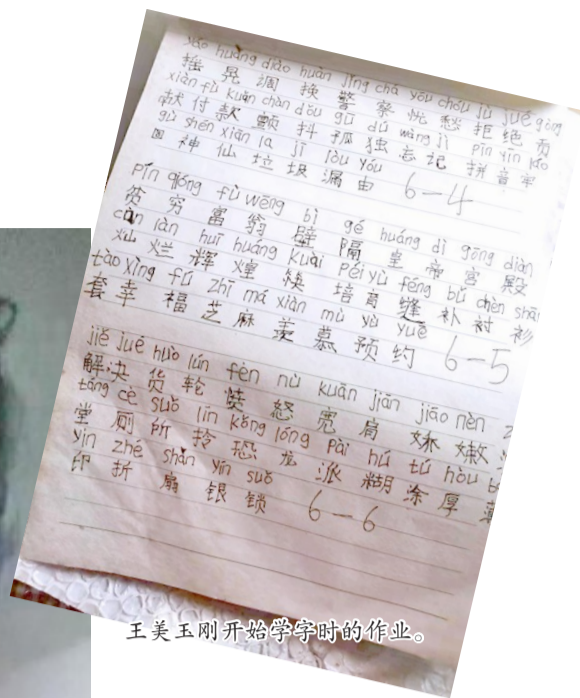 yáo huàng diào huàn jǐng chá yōu chóu jù jué gòng
摇 晃 调 换 警 察 忧 愁 拒 绝 贡
xiàn fù kuǎn chàn dǒu gū dú wàng jì pīn yīn láo
献 付 款 颤 抖 孤 独 忘 记 拼 音 牢
gù shén xiān la jī lòu yóu
固 神 仙 垃 圾 漏 由 6—4
pín qióng fù wēng bì gé huáng dì gōng diàn
贫 穷 富 翁 壁 隔 皇 帝 宫 殿
càn làn huī huáng kuài péi yù féng bǔ chèn shān
灿 烂 辉 煌 筷 培 育 缝 补 衬 衫
tào xìng fú zhī má xiàn mù yù yuē
套 幸 福 芝 麻 羡 慕 预 约 6—5
jiě jué huò lún fèn nù kuān jiān jiāo nèn
解 决 货 轮 愤 怒 宽 肩 嫩
táng cè suǒ līn kǒng lóng pài hú tú hòu
堂 厕 所 拎 恐 龙 派 糊 涂 厚
yìn zhé shàn yín suǒ
印 折 扇 银 锁 6—6
王美玉刚开始学字时的作业。